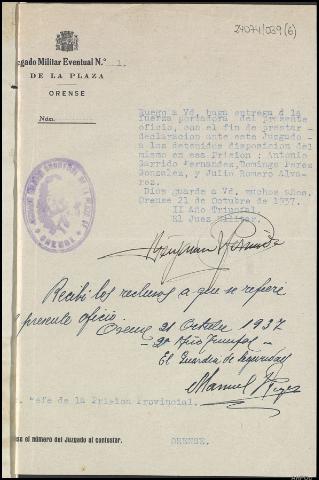 24074/039(6)
gado Militar Eventual N.º 1.
DE LA PLAZA
ORENSE
Núm.
Ruego a Vd, haga entrega á la
fuerza portadora del presente
oficio, con el fin de prestar -
declaracion ante este Juzgado -
a los detenidos disposicion del
mismo en esa Prision ; Antonio
Garrido Fernandez,Domingo Perez
Gonzalez, y Julio Romero Alva-
rez.
Dios guarde a Vd, muchos años.
Orense 21 de Octubre de 1937.
II Año Triunfal
El Juez Militar.
Recibí los reclusos a que se refiere
presente oficio.
Orense 21 Octubre 1937
2º Año Triunfal
El Guardia de Seguridad
Manuel
Jefe de la Prision Provincial.
se el número del Juzgado al contestar.
ORENSE.